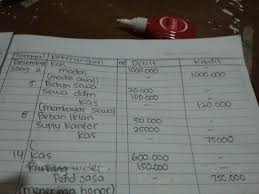 Tanggal Keterangan Debit Kredit
Desember Kas 1000.000
2009 2 modal 1000.000
(modal awal)
5 Beban sewa 20.000
sewa ddm 100.000
Kas 120.000
(membayar sewa)
8 Beban Iklan 50.000
Suply kantor 25000
Kas 75000
(
14 Kas 600.000
Piutang 150.000
Pend Jasa 750.000
(menerima honor)